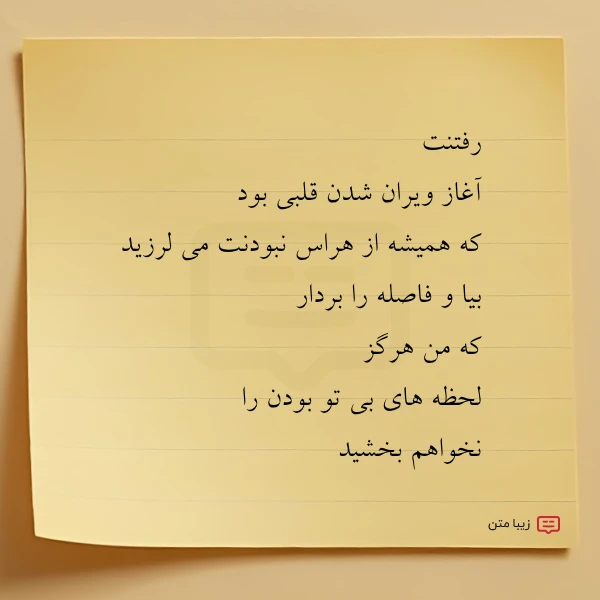 رفتنت
آغاز ویران شدن قلبی بود
که همیشه از هراس نبودنت می لرزید
بیا و فاصله را بردار
که من هرگز
لحظه های بی تو بودن را
نخواهم بخشید
زیبا متن